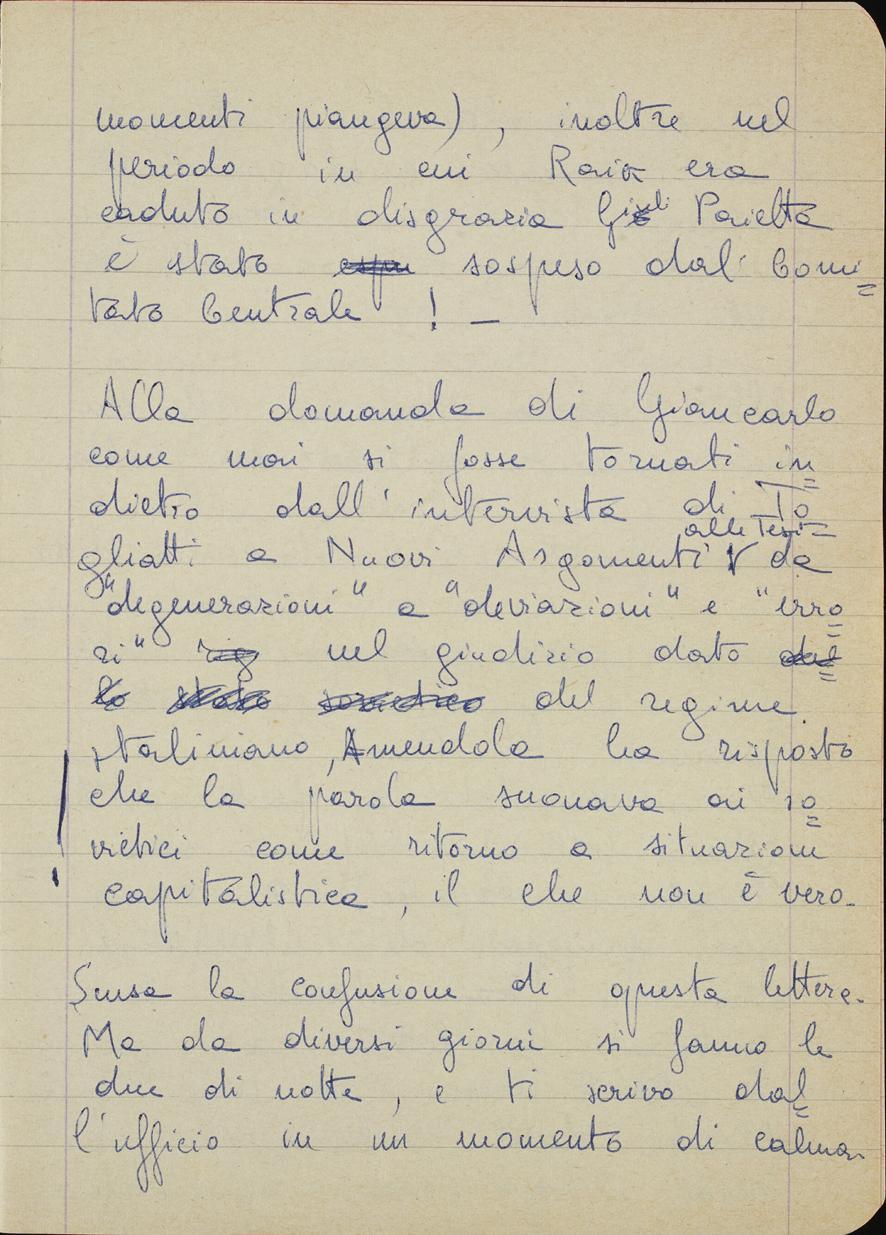 momenti piangeva), inoltre nel
periodo in cui Raik era
caduto in disgrazia Giuli Paietta
è stato sospeso dal Comi=
tato Centrale ! –
Alla domanda di Giancarlo
come mai si fosse tornati in=
dietro dall'intervista di To=
alle Tesi=
gliatti a Nuovi Argomenti da
"degenerazioni" a "deviazioni" e "erro=
ri" nel giudizio dato
del regime
staliniano, Amendola ha risposto
che la parola suonava ai so=
vietici come ritorno a situazione
capitalistica, il che non è vero.
Scusa la confusione di questa lettera.
Ma da diversi giorni si fanno le
due di notte, e ti scrivo dal=
l'ufficio in un momento di calma.